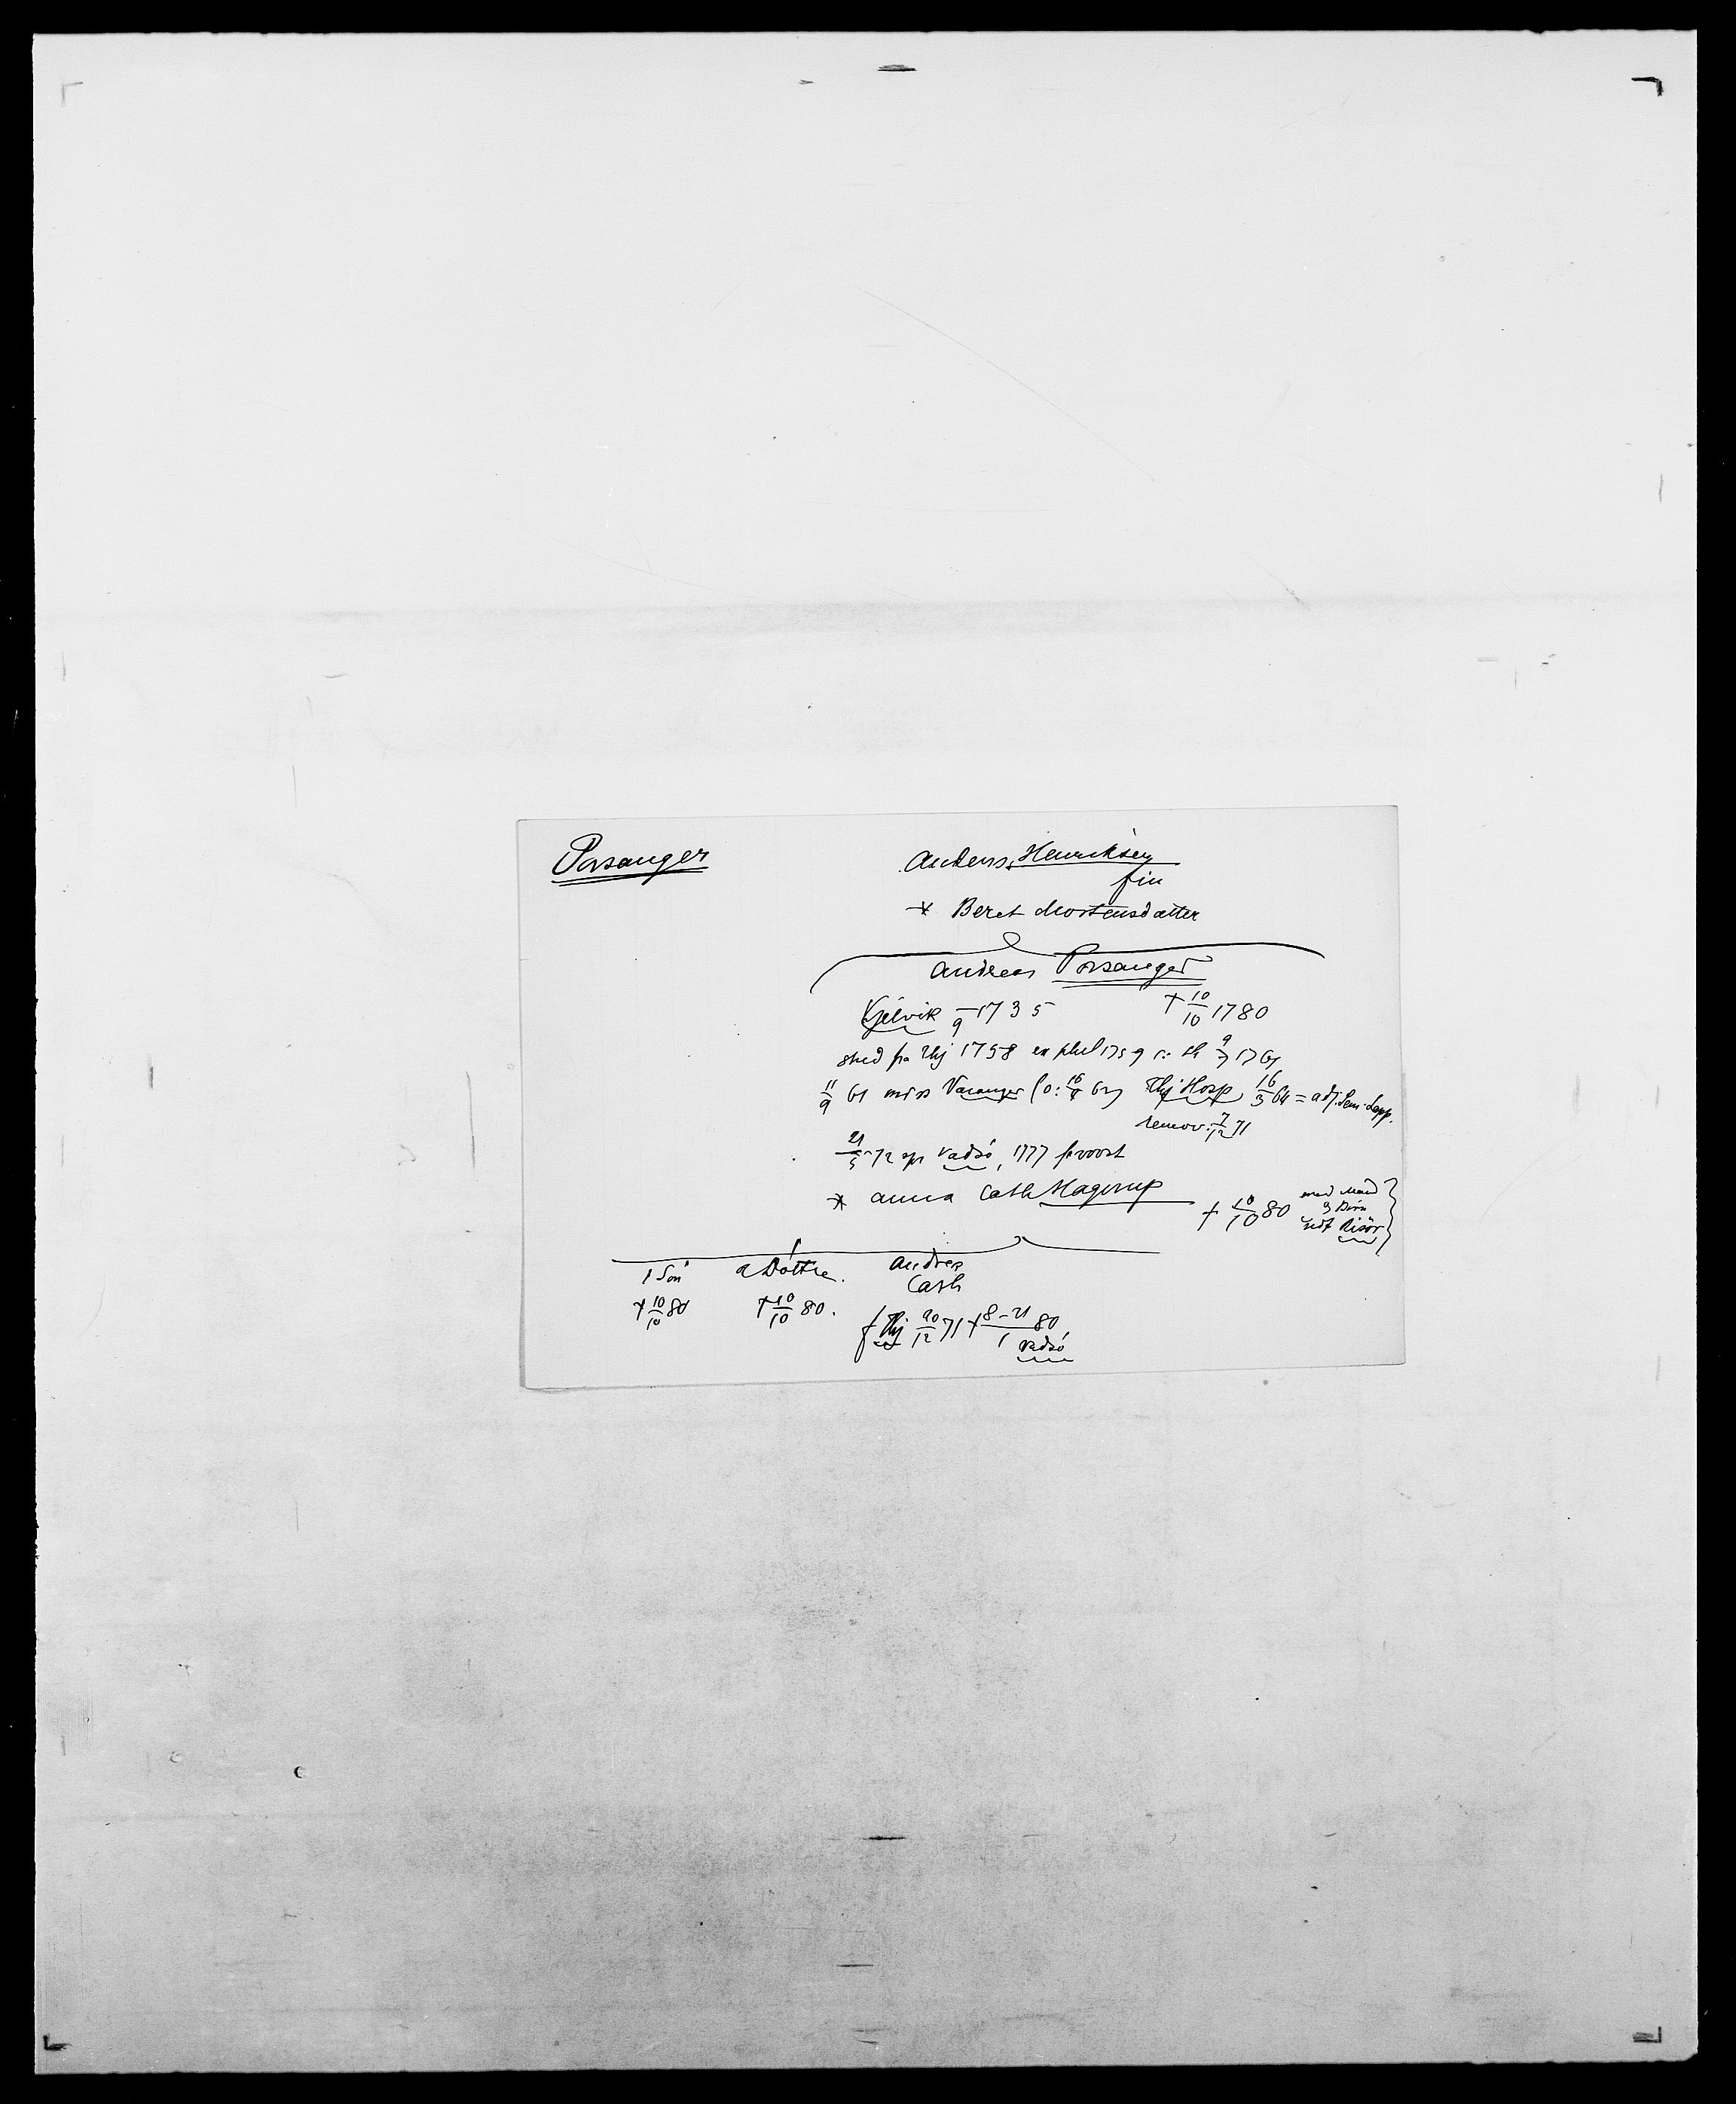 Porsanger
Anders Henriksen
fin
* Beret Mortensdatter
Andreas Porsanger
Kjelvik – 1735 † 10/10 1780
9
stud fra Thj 1758 ex phil 1759 c: th 9/7 1761
11/9 61 miss Varanger (o: 16/9 61) Thj Hosp 16/3 64 = adj. Sem. Lapp.
remov. 7/12 71
21/5 72 sp Vadsö, 1777 provst
* Anna Cath Hagerup † 10/10 80 med Mand
3 Börn
Risör
1 Sön 2 Döttre. Andrea
Cath
† 10/10 80 † 10/10 80.
f Thj 20/12 71 † 8–21/1 80
Vadsö